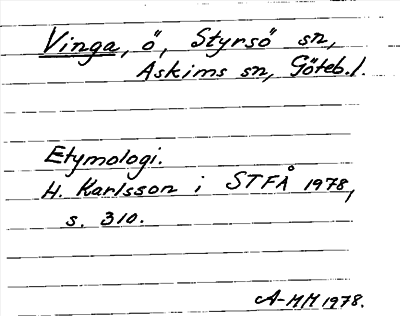 Vinga, ö, Styrsö sn,
Askims sn, Göteb. l.
Etymologi.
H. Karlsson i STFÅ 1978,
s. 310.
A-MM 1978.